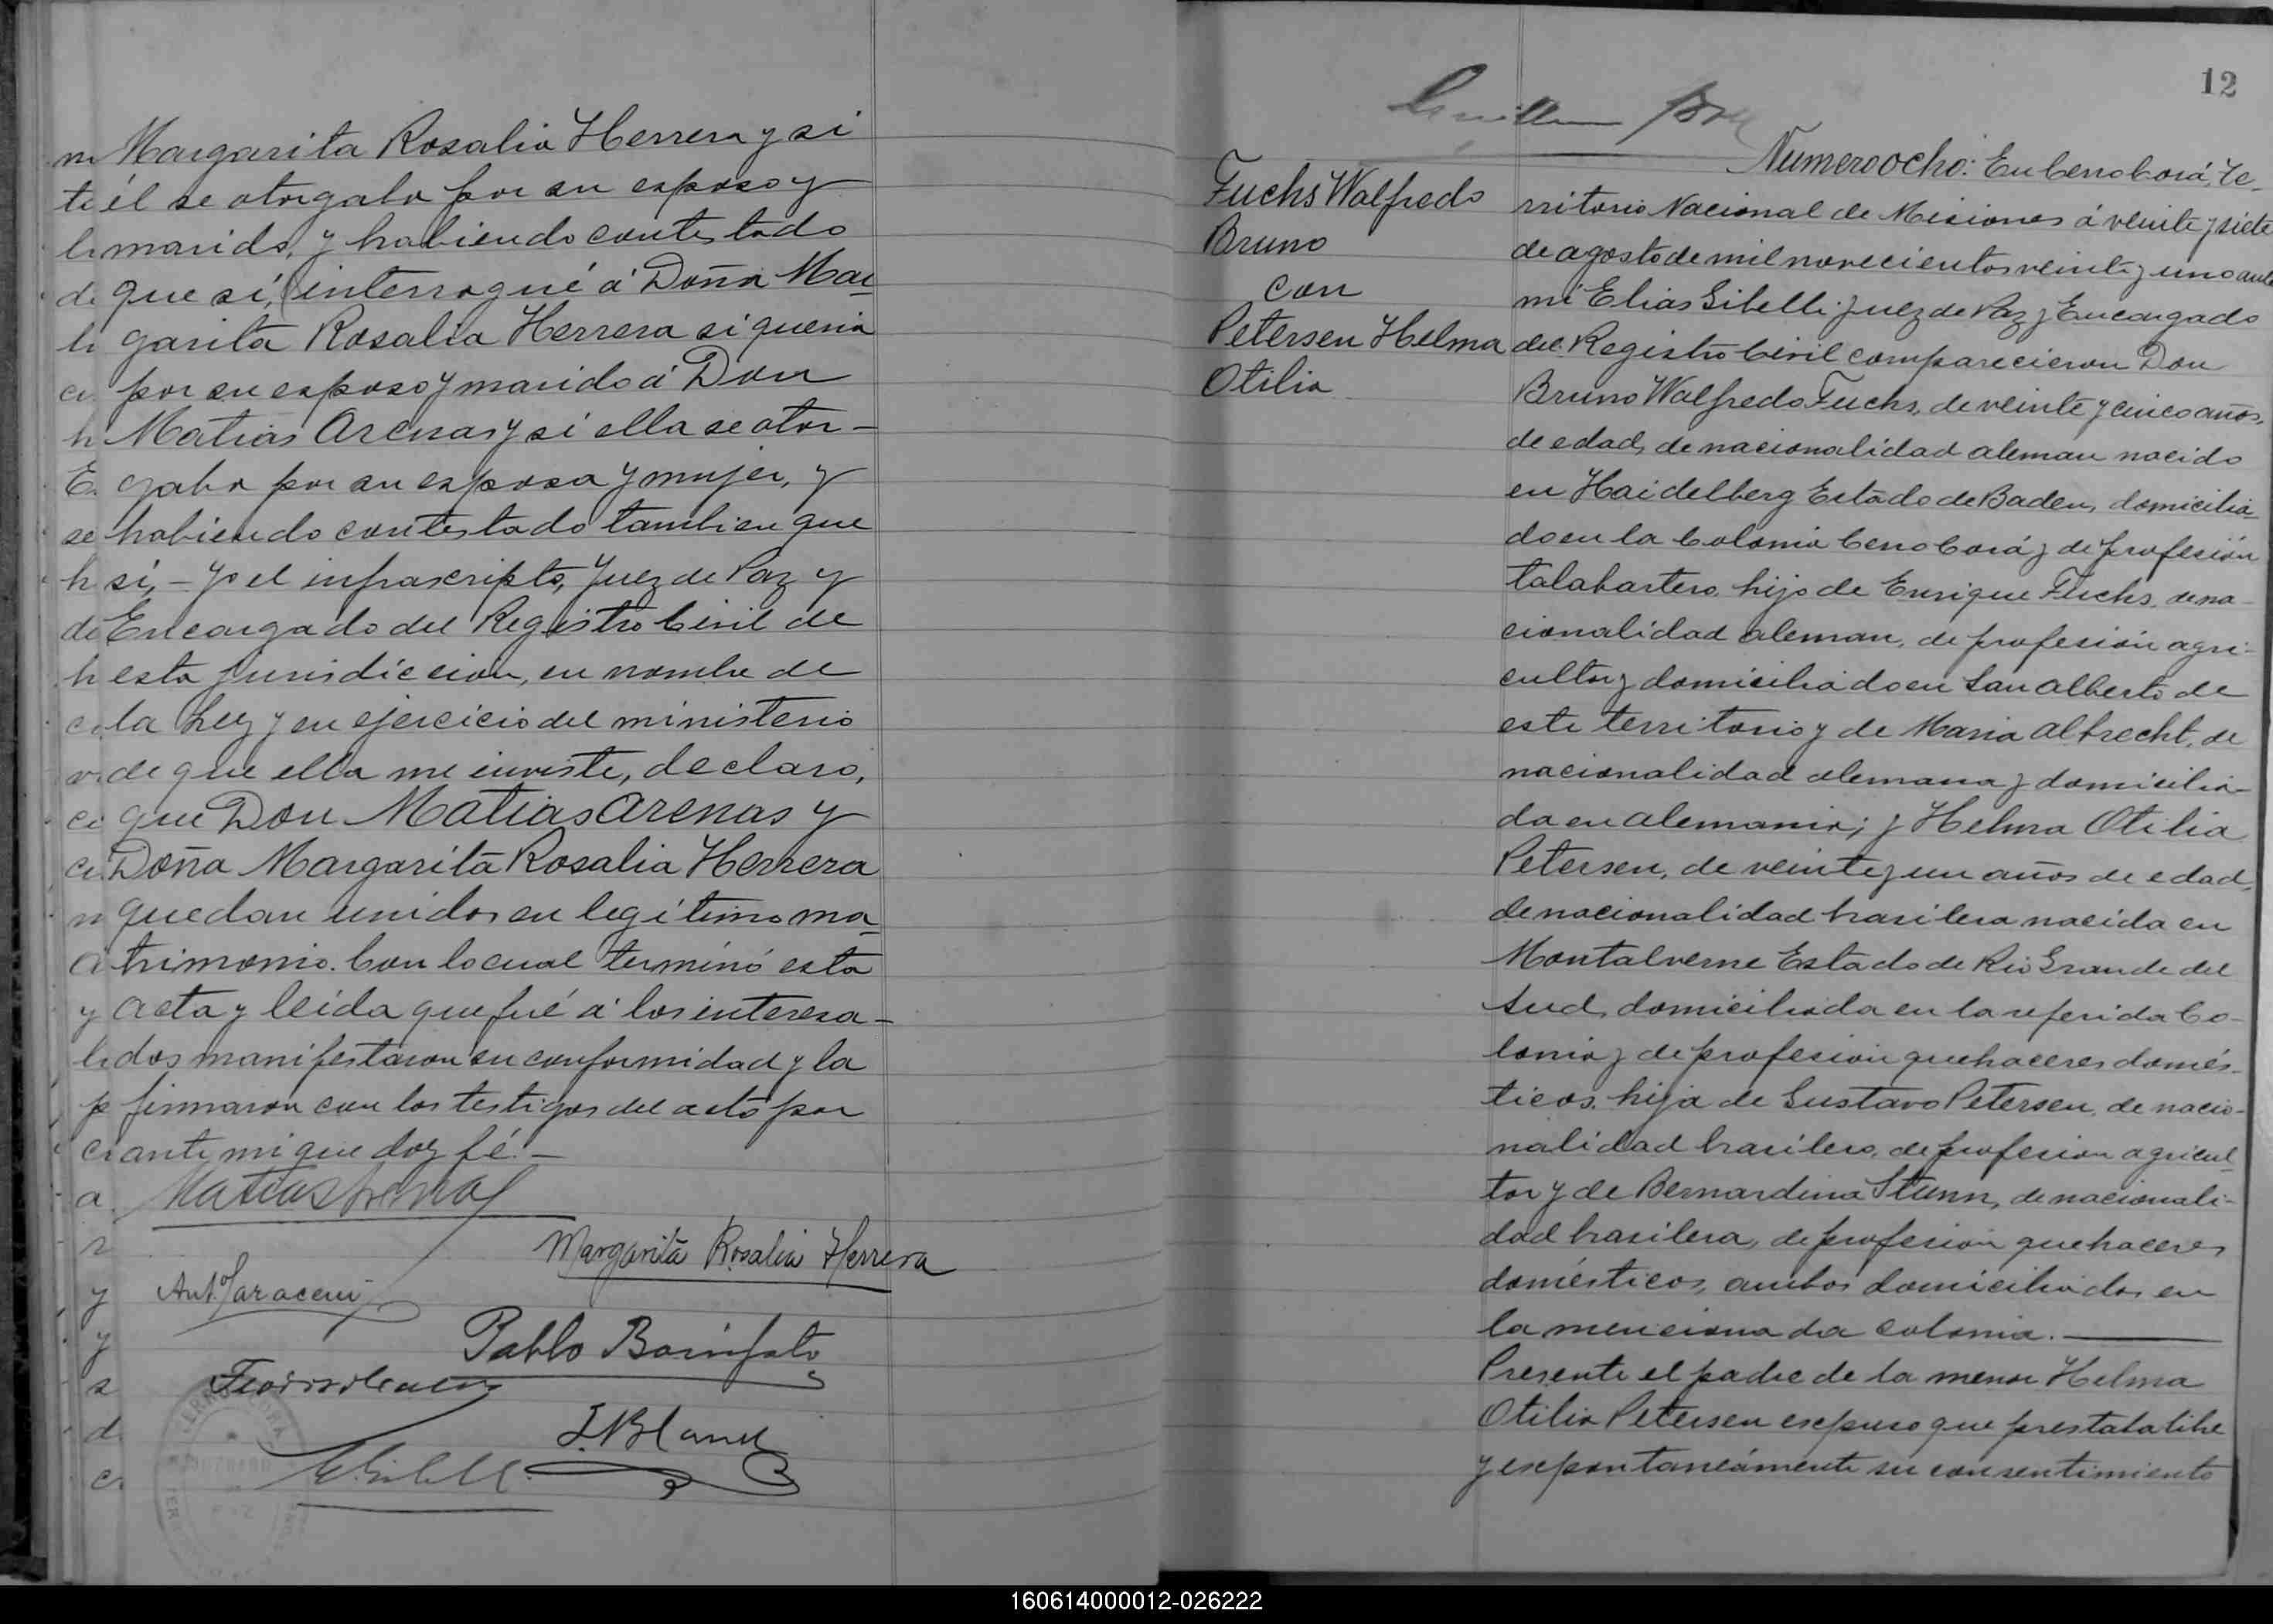 Margarita Rosalia Herrera y si
él se otorgaba por su esposo y
marido, y habiendo contestado
que sí, interrogué á Doña Mar
garita Rosalia Herrera si queria
por su esposo y marido á Don
Matias Arenas y si ella se otor-
gaba por su esposa y mujer, y
habiendo contestado tambien que
sí, - Yo el infrascripto, Juez de Paz y
Encargado del Registro Civil de
esta jurisdiccion, en nombre de
la Ley y en ejercicio del ministerio
de que ella me inviste, declaro,
que Don Matias Arenas y
Doña Margarita Rosalia Herrera
quedan unidos en legítimo ma
trimonio. Con lo cual terminó esta
acta y leida que fué á los interesa-
dos manifestaron su conformidad y la
firmaron con los testigos del acto por
ante mi que doy fé. -
Matias Arenas
Margarita Rosalia Herrera
Pablo Bonifato
12
Fuchs Walfredo
Bruno
con
Petersen Helma
Otilia
Numero ocho: En Cerro Corá, Te-
rritorio Nacional de Misiones á veinte y siete
de agosto de mil novecientos veinte y uno ante
mí Elias Gibelli Juez de Paz y Encargado
del Registro Civil comparecieron Don
Bruno Walfredo Fuchs, de veinte y cinco años,
de edad, de nacionalidad aleman nacido
en Haidelberg Estado de Baden, domicilia
do en la Colonia Cerro Corá y de profesión
talabartero, hijo de Enrique Fuchs, de na-
cionalidad aleman, de profesión agri-
cultor y domiciliado en San Alberto de
este territorio y de Maria Albrecht, de
nacionalidad alemana y domicilia-
da en Alemania; y Helma Otilia
Petersen, de veinte y un años de edad,
de nacionalidad brasilera nacida en
Montalverne Estado de Rio Grande del
Sud, domiciliada en la referida Co-
lonia y de profesión quehaceres domés-
ticos, hija de Gustavo Petersen, de nacio-
nalidad brasilero, de profesion agricul-
tor y de Bernardina Stumn, de nacionali-
dad brasilera, de profesion quehaceres
domésticos, ambos domiciliados en
la mencionada colonia.
Presente el padre de la menor Helma
Otilia Petersen escpuso que prestaba libre
y escpontaneámente su consentimiento
160614000012-026222